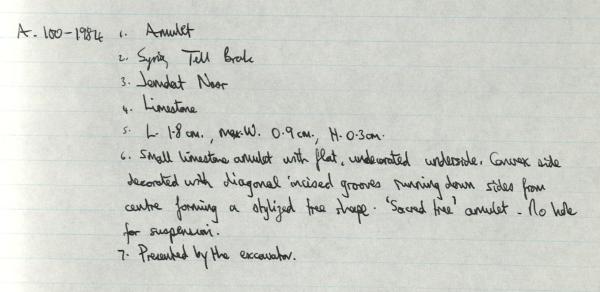 A. 100-1984 1. Amulet
2. Syria, Tell Brak
3. Jemdet Nasr
4. Limestone
5. L. 1.8 cm., max.W. 0.9 cm., H. 0.3 cm.
6. Small limestone amulet with flat, undecorated underside. Convex side
decorated with diagonal incised grooves running down sides from
centre forming a stylized tree shape. 'Sacred tree' amulet - No hole
for suspension.
7. Presented by the excavator.